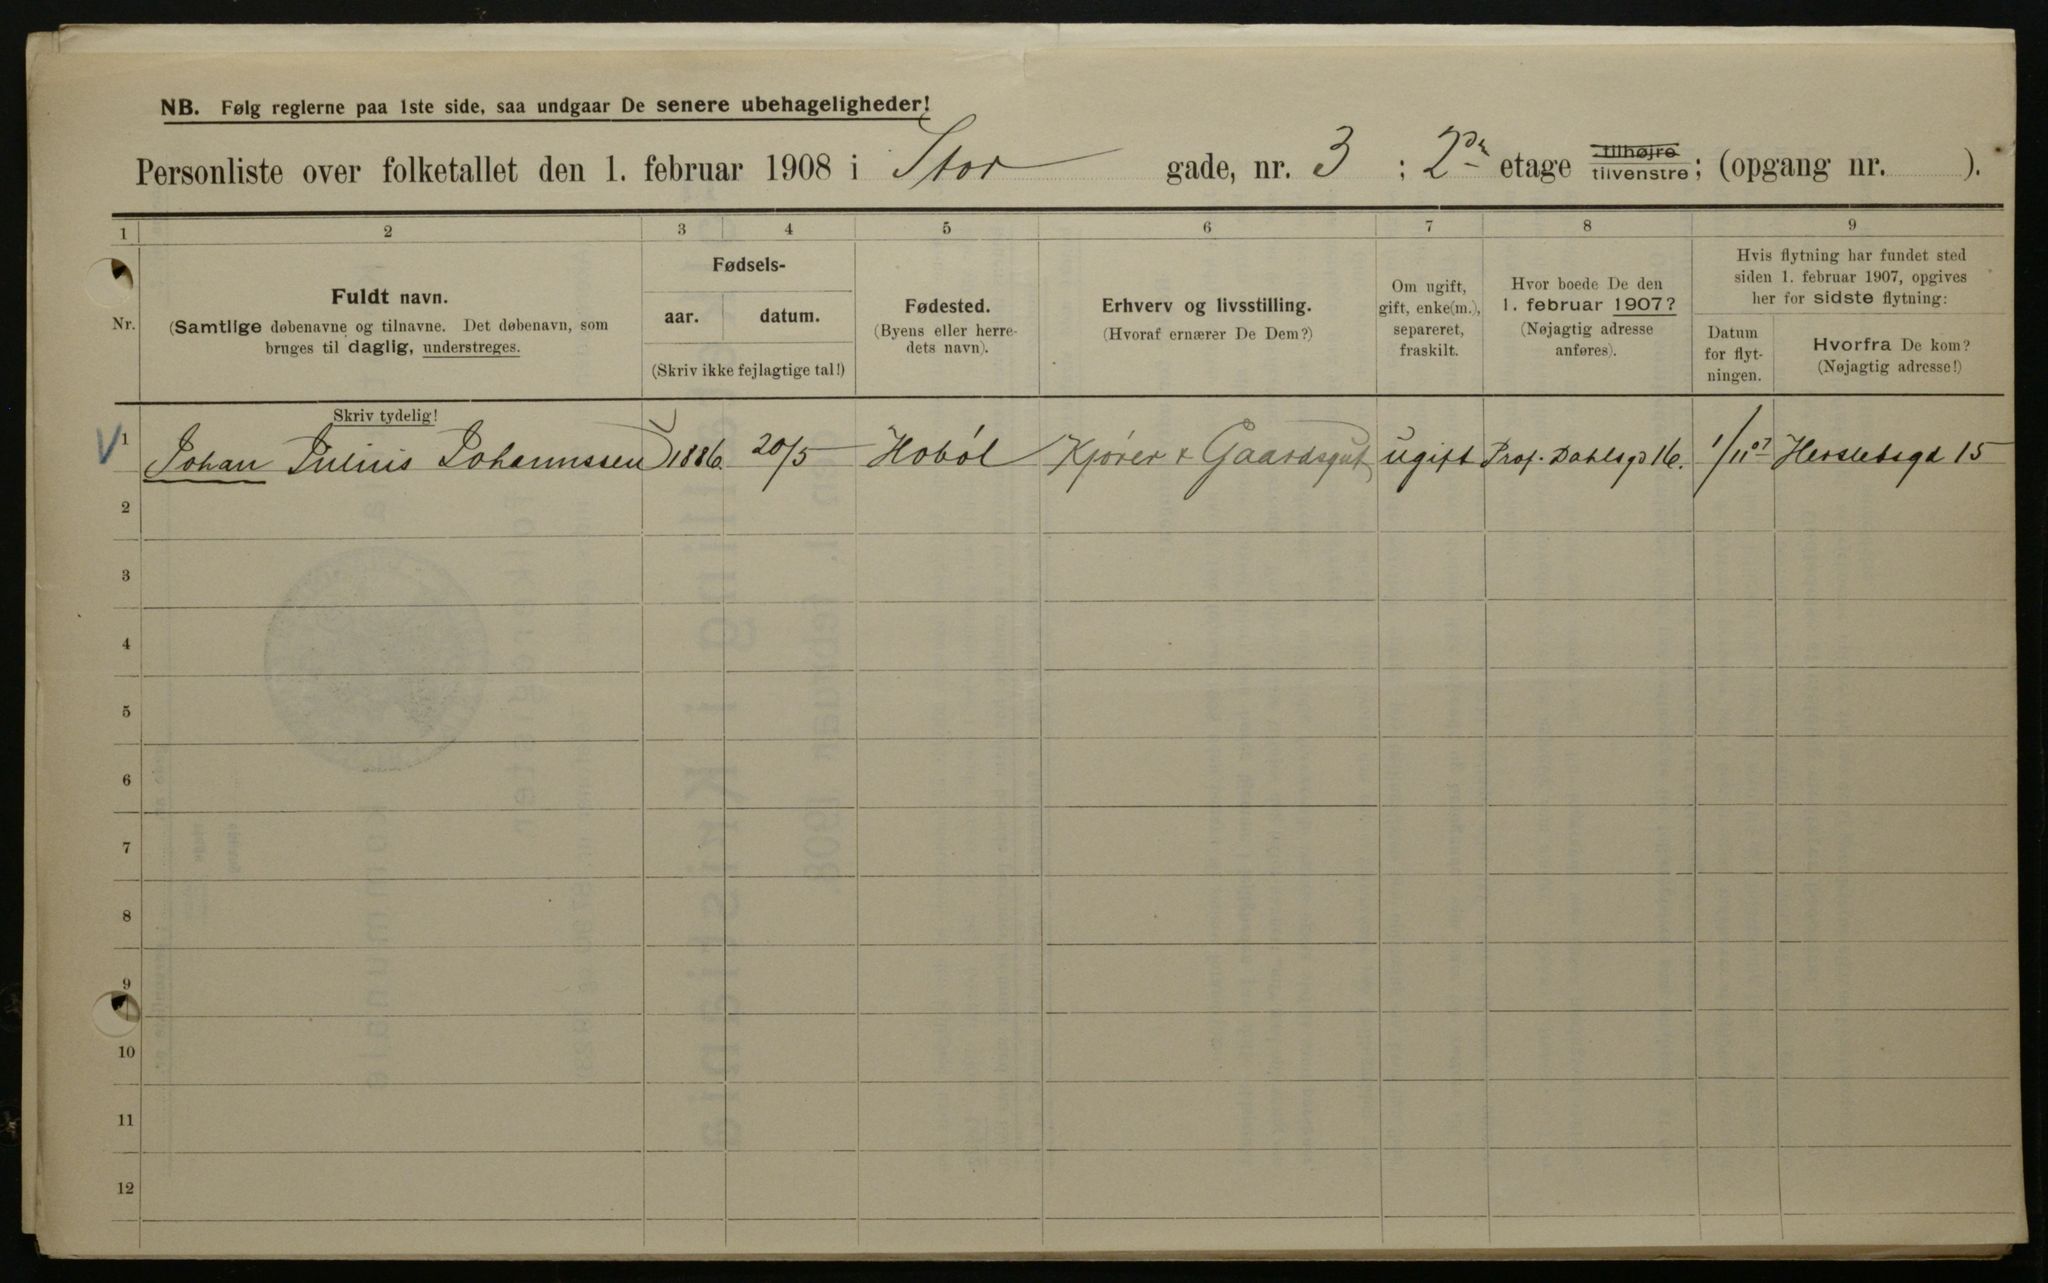 NB. Følg reglerne paa 1ste side, saa undgaar De senere ubehageligheder!
Personliste over folketallet den 1. februar 1908 i Stor gade, nr. 3 ; 2den etage tilhøjre tilvenstre; (opgang nr. ).
1 2 3 4 5 6 7 8 9
Nr.
Fuldt navn.
(Samtlige døbenavne og tilnavne. Det døbenavn, som
bruges til daglig, understreges.
Fødsels-
aar. datum.
(Skriv ikke fejlagtige tal!)
Fødested.
(Byens eller herre-
dets navn).
Erhverv og livsstilling.
(Hvoraf ernærer De Dem?)
Om ugift,
gift, enke(m.),
separeret,
fraskilt.
Hvor boede De den
1. februar 1907?
(Nøjagtig adresse
anføres).
Hvis flytning har fundet sted
siden 1. februar 1907, opgives
her for sidste flytning:
Datum
for flyt-
ningen.
Hvorfra De kom?
(Nøjagtig adresse!)
Skriv tydelig!
1 Johan Julius Johannssen 1886 20/5 Hobøl Kjører & Gaardsgut ugift Prof. Dahlsgd 16. 1/11 07 Herslebsgd 15
2
3
4
5
6
7
8
9
10
11
12